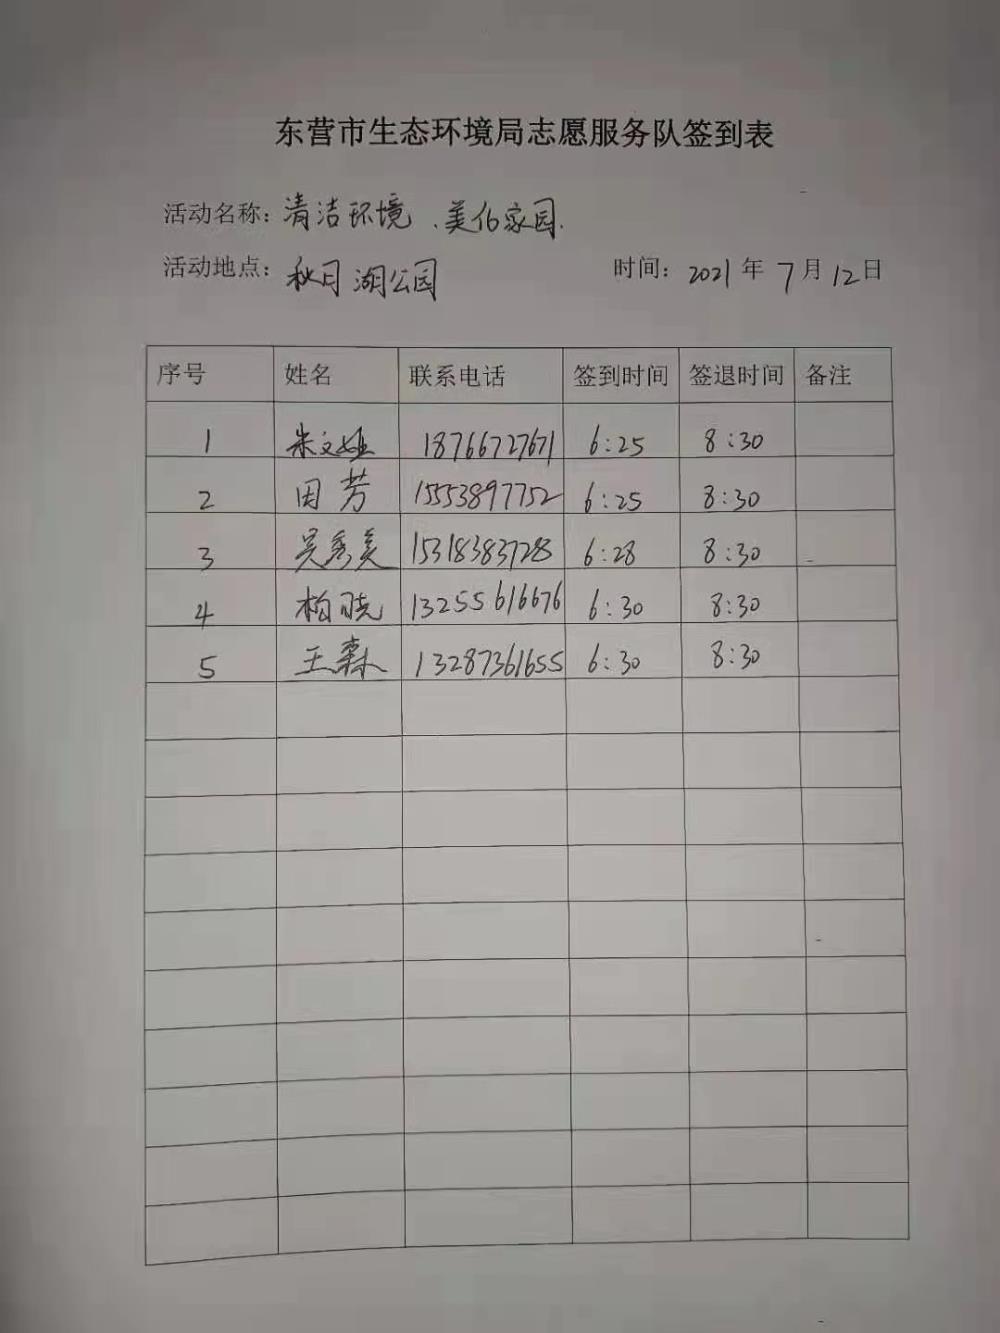 东营市生态环境局志愿服务队签到表
活动名称：清洁环境、美化家园.
活动地点：秋月湖公园 时间：2021年7月12日
序号 姓名 联系电话 签到时间 签退时间 备注
1 朱文娅 18766727671 6:25 8:30
2 田芳 15553897752 6:25 8:30
3 吴秀美 15318383728 6:28 8:30
4 柏晓 13255616676 6:30 8:30
5 王霖 13287361655 6:30 8:30